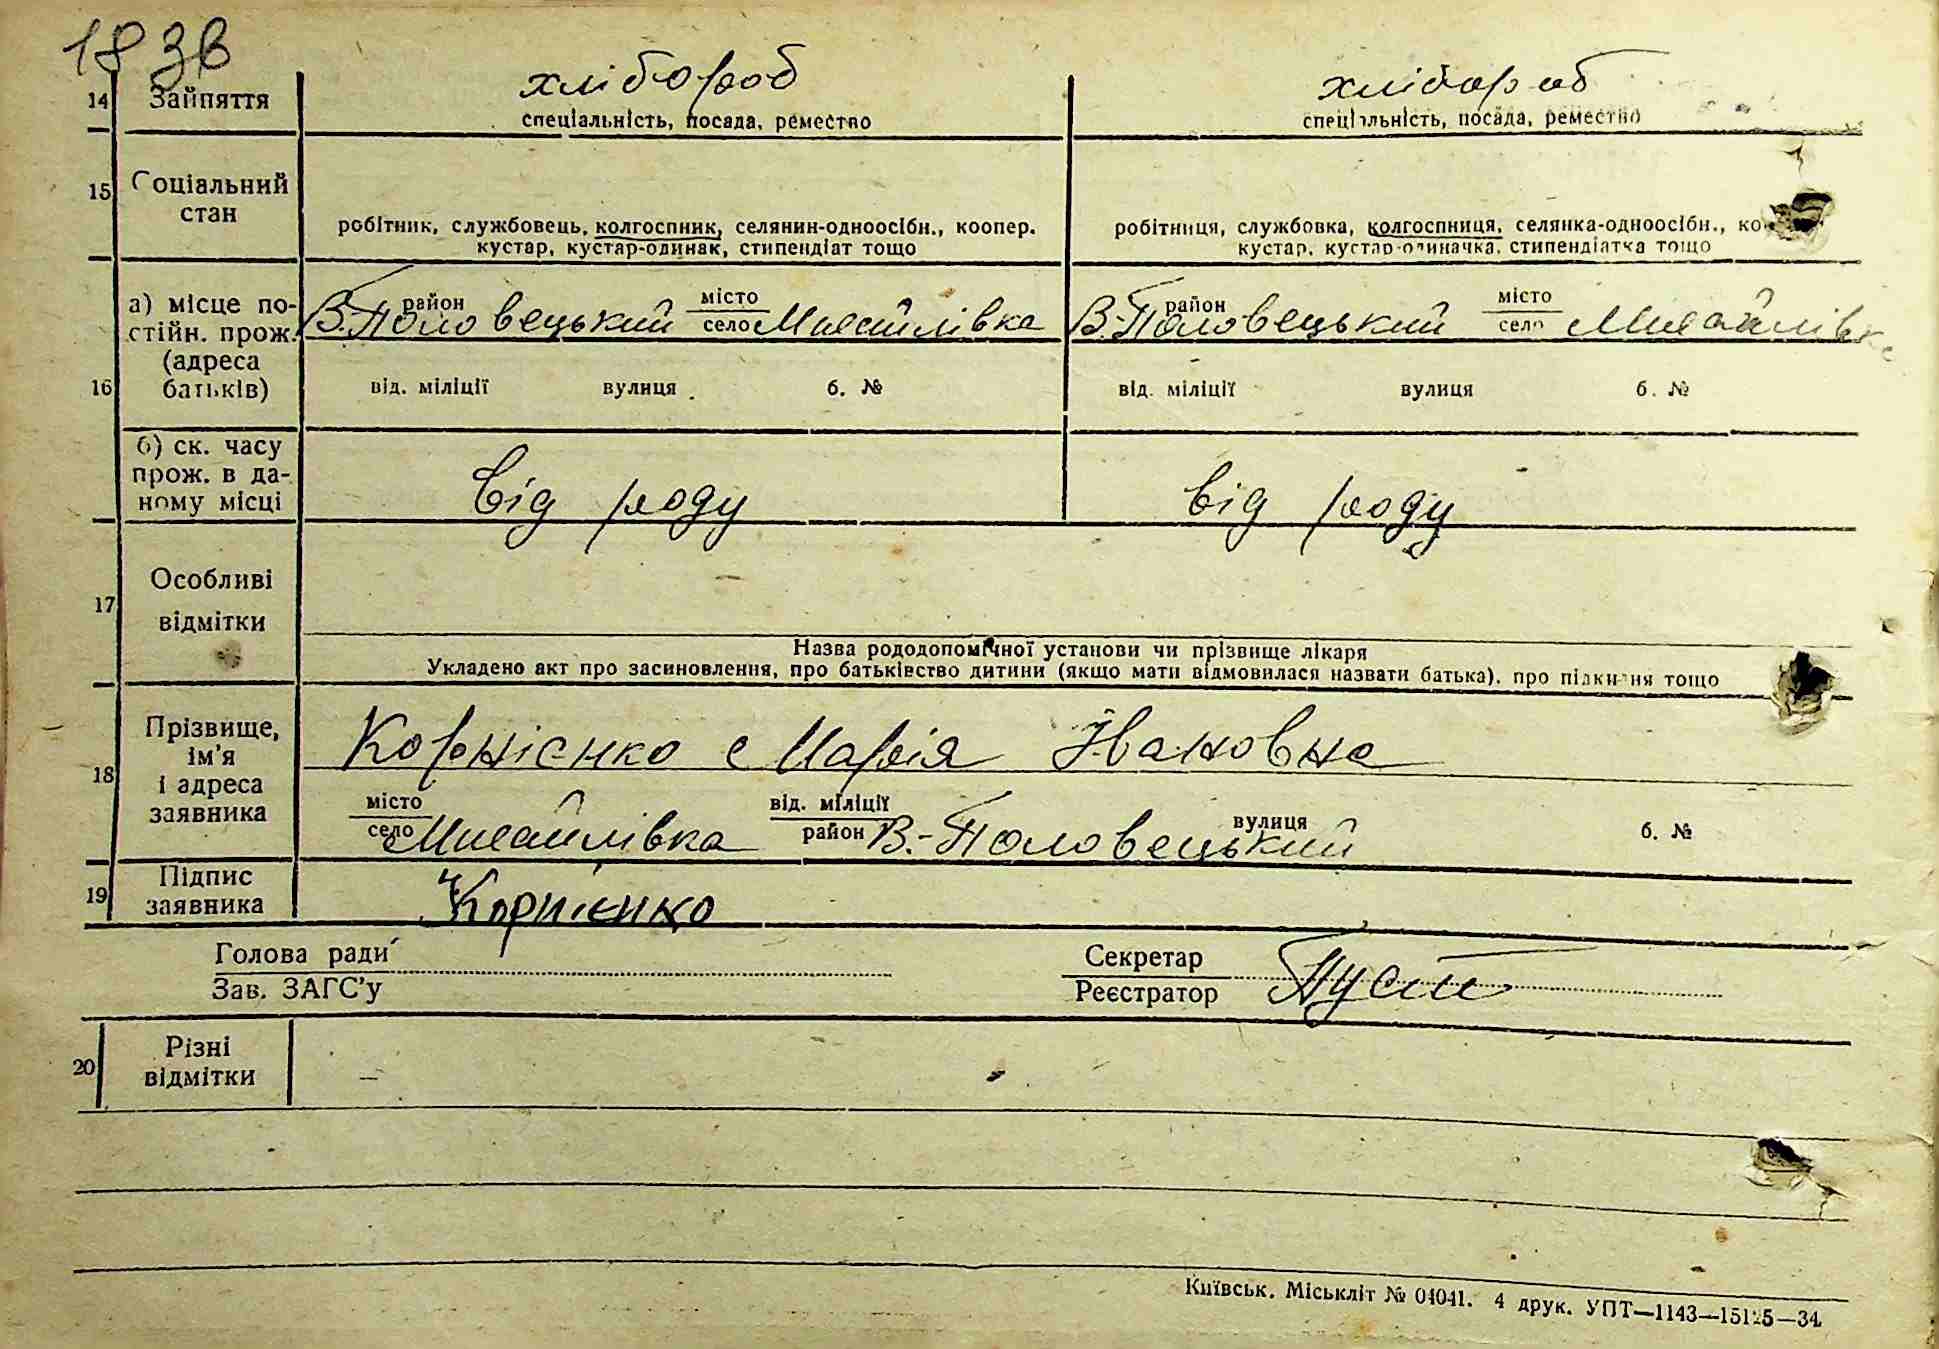 183в
хлібороб хлібороб
14 Зайняття спеціальність, посада, ремество спеціальність, посада, ремество
15 Соціальний стан
робітник, службовець, колгоспник, селянин-одноосібн., коопер.
кустар, кустар-одинак, стипендіат тощо
робітниця, службовка, колгоспниця, селянка-одноосібн., ко
кустар, кустар-одиначка, стипендіатка тощо
16 а) місце по-
стійн. прож.
(адреса
батьків)
район В.-Половецький місто село Михайлівка
район В.-Половецький місто село Михайлівка
від. міліції вулиця б. №
від. міліції вулиця б. №
б) ск. часу
прож. в да-
ному місці
від роду від роду
17 Особливі
відмітки
Назва рододопомічної установи чи прізвище лікаря
Укладено акт про засиновлення, про батьківство дитини (якщо мати відмовилася назвати батька), про підкидання тощо
18 Прізвище,
ім'я
і адреса
заявника
Корнієнко Марія Івановна
місто село Михайлівка від. міліції район В.-Половецький вулиця б. №
19 Підпис
заявника
Корнієнко
Голова ради Секретар
Зав. ЗАГС'у Реєстратор
20 Різні
відмітки
–
Київськ. Міськліт № 04041. 4 друк. УПТ—1143—15125—34